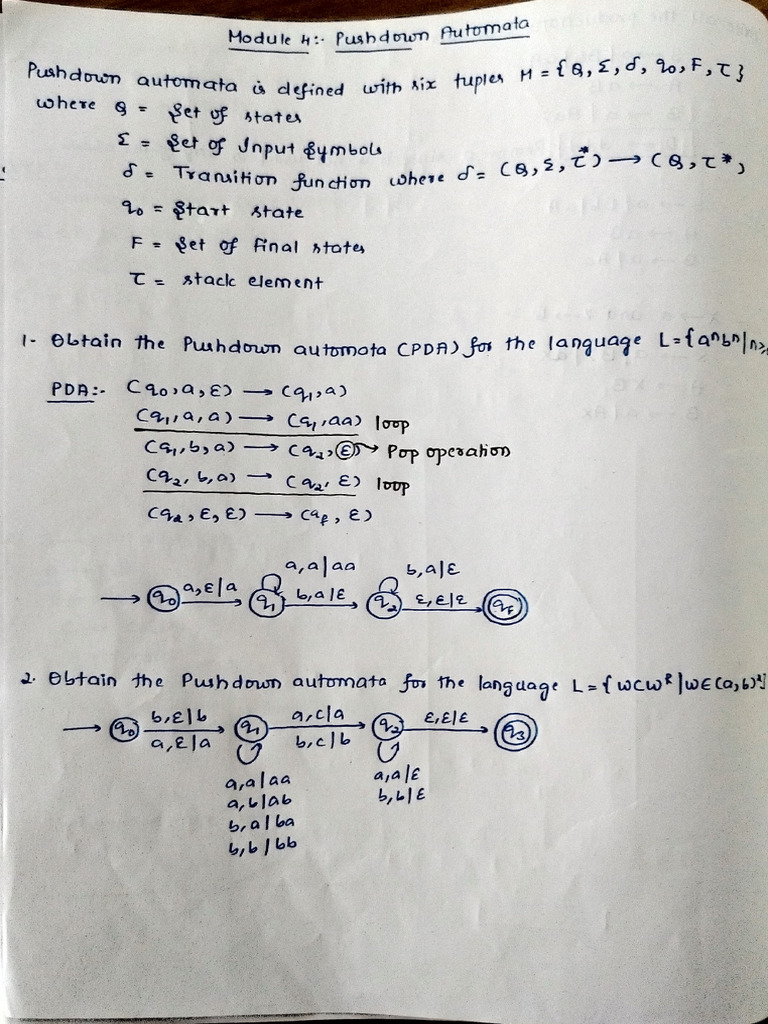 Module 4:- Pushdown Automata
Pushdown automata is defined with six tuples M = {Q, Σ, δ, q0, F, τ}
where Q = Set of states
Σ = Set of Input Symbols
δ = Transition function where δ = (Q, Σ, τ*) → (Q, τ*)
q0 = Start state
F = Set of final states
τ = stack element
1- Obtain the Pushdown automata (PDA) for the language L = {aⁿbⁿ | n≥
PDA:- (q0, a, ε) → (q1, a)
(q1, a, a) → (q1, aa) loop
(q1, b, a) → (q2, ε) → Pop operation
(q2, b, a) → (q2, ε) loop
(q2, ε, ε) → (qf, ε)
a, a | aa b, a | ε
→ q0 a, ε | a q1 b, a | ε q2 ε, ε | ε qf
2. Obtain the Pushdown automata for the language L = { wcwᴿ | w ∈ (a, b)*}
→ q0 b, ε | b q1 a, c | a q2 ε, ε | ε q3
a, ε | a b, c | b
a, a | aa a, a | ε
a, b | ab b, b | ε
b, a | ba
b, b | bb